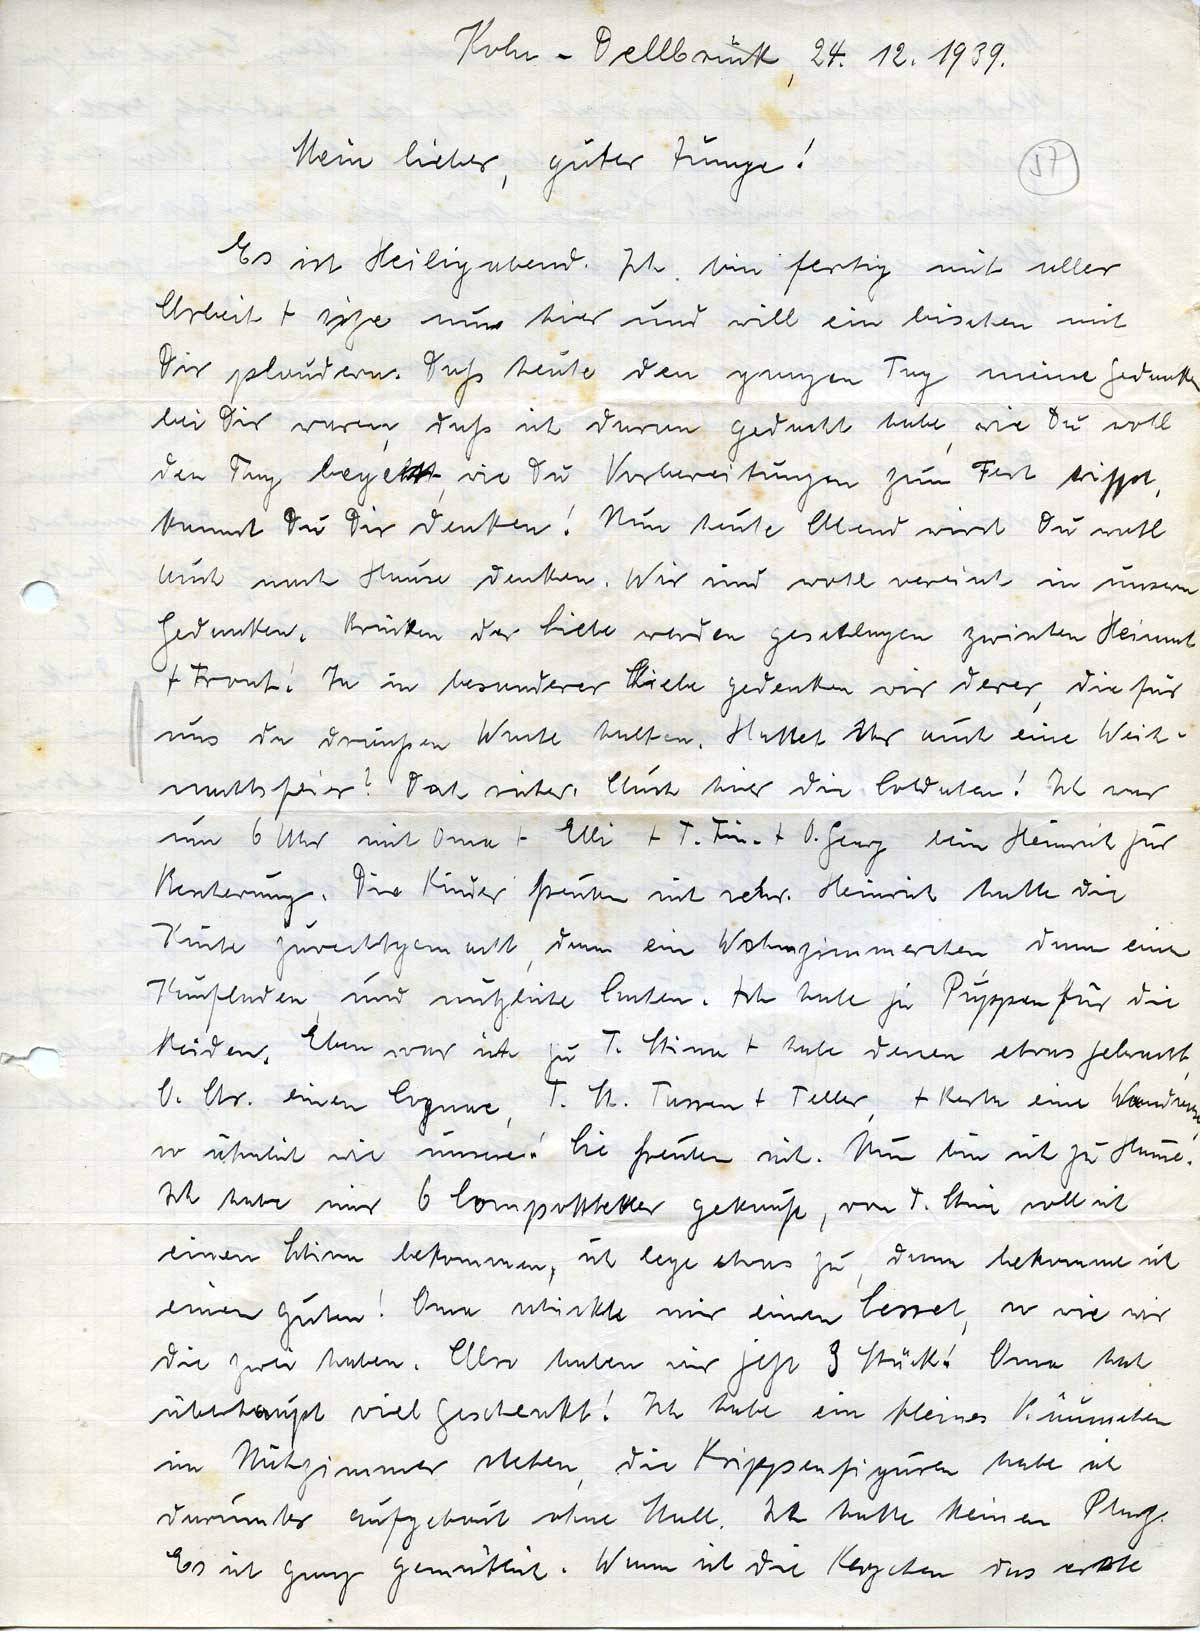 Köln - Dellbrück, 24. 12. 1939.
Mein lieber, guter Junge!
57
Es ist Heiligabend. Ich bin fertig mit aller
Arbeit + sitze nun hier und will ein bischen mit
Dir plaudern. Daß heute den ganzen Tag meine Gedanken
bei Dir waren, daß ich daran gedacht habe, wie Du wohl
den Tag begehst, wie Du Vorbereitungen zum Fest triffst,
kannst Du Dir denken! Nun heute Abend wirst Du wohl
auch nach Hause denken. Wir sind wohl vereint in unsern
Gedanken. Brücken der Liebe werden geschlagen zwischen Heimat
+ Front! In in besonderer Liebe gedenken wir derer, die für
uns da draußen Wache halten. Hattet Ihr auch eine Weih-
nachtsfeier? Doch sicher. Auch hier die Soldaten! Ich war
um 6 Uhr mit Oma + Elli + T. Fin. + O. Georg beim Heinrich zur
Bescherung. Die Kinder freuten sich sehr. Heinrich hatte die
Küche zurechtgemacht, dann ein Wohnzimmerchen dann eine
Kaufladen und nützliche Sachen. Ich habe ja Puppen für die
Beiden. Eben war ich zu T. Stina + habe denen etwas gebracht,
O. Chr. einen Cognac, T. St. Tassen + Teller, + Kerta eine
so ähnlich wie unsere! Sie freuten sich. Nun bin ich zu Hause.
Ich habe mir 6 Compotteller gekauft, von T. Stina soll ich
einen Schirm bekommen, ich lege etwas zu, dann bekomme ich
einen guten! Oma schickte mir einen Sessel, so wie wir
die zwei haben. Also haben wir jetzt 3 Stück! Oma hat
überhaupt viel geschenkt! Ich habe ein kleines Bäumchen
im Nähzimmer stehen, die Krippenfiguren habe ich
darunter aufgebaut ohne Stall. Ich hatte keinen Platz.
Es ist ganz gemütlich. Wenn ich die Kerzchen das erste